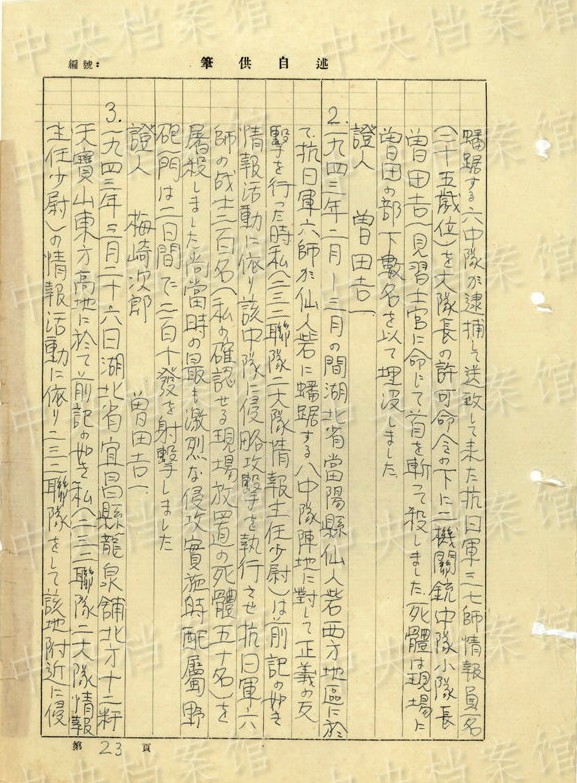 中央档案馆
編號：
筆供自述
蟠踞する六中隊が逮捕して送致して来た抗日軍三七師情報員一名
(二十五歳位)を大隊長の許可命令の下に二機関銃中隊小隊長
曽田吉一(見習士官に命じて首を斬って殺しました、死體は現場に
曽田の部下數名を以て埋没しました
證人 曽田吉一
2. 一九四三年二月－三月の間湖北省當陽縣仙人砦西方地區に於
て抗日軍六師が仙人砦に蟠踞する八中隊陣地に対して正義の反
撃を行った時私(二三二聯隊二大隊情報主任少尉)は前記の如き
情報活動に依り該中隊に侵略攻撃を執行させ抗日軍六
師の战士二百名(私の確認せる現場放置の死體五十名)を
屠殺しました尚當時の最も激烈な侵攻實施時配屬野
砲門は二日間で二百十發を射撃しました
證人 梅崎次郎 曽田吉一
3. 一九四三年三月二十六日湖北省宜昌縣龍泉舗北方十二粁
天寶山東方高地に於て前記の如き私(二三二聯隊二大隊情報
主任少尉)の情報活動に依り二三二聯隊をして該地附近に侵
第23頁